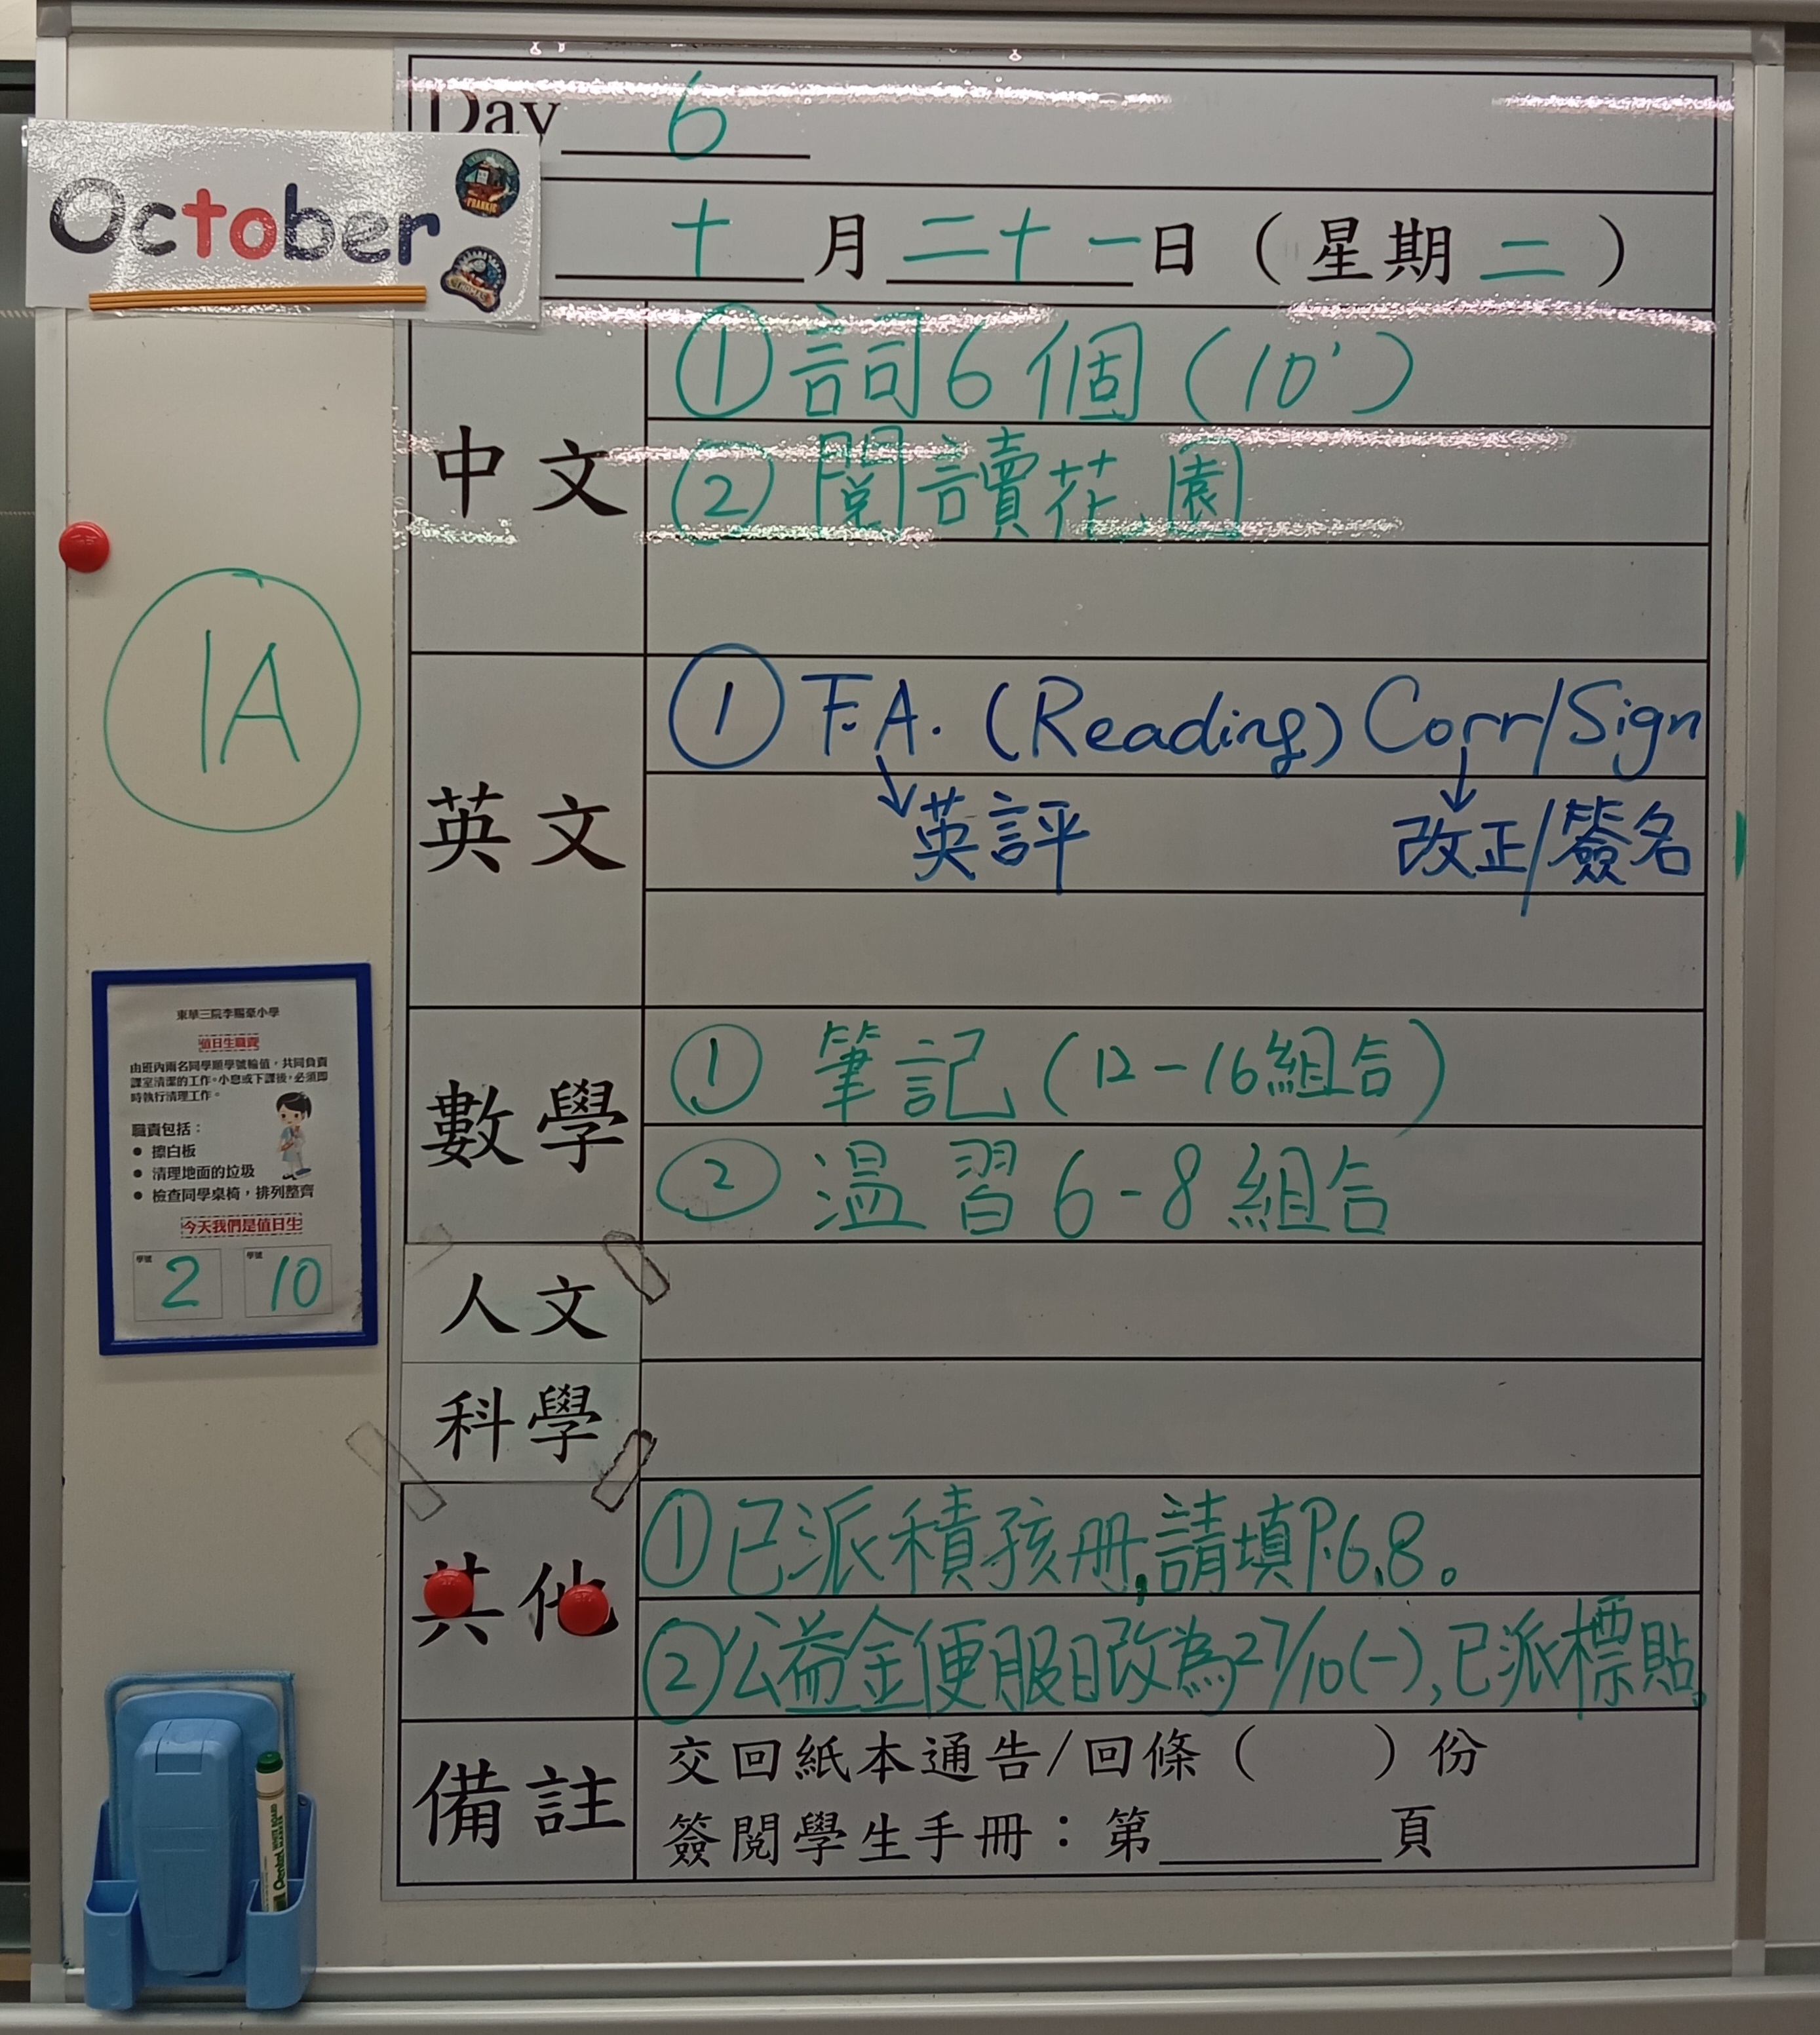 Day 6
October
十月二十一日（星期二）
中文
①詞6個（10'）
②閱讀花園
1A
英文
① F.A. (Reading) Corr/Sign
英評 改正/簽名
東華三院李賜豪小學
值日生職責
由班內兩名同學順學號輪值，共同負責
課室清潔的工作。小息或下課後，必須即
時執行清理工作。
職責包括：
● 擦白板
● 清理地面的垃圾
● 檢查同學桌椅，排列整齊
今天我們是值日生
學號 2 學號 10
數學
①筆記（12-16組合）
②溫習6-8組合
人文
科學
其他
①已派積孩冊,請填P.6,8。
②公益金便服日改為27/10(一),已派標貼。
備註
交回紙本通告/回條（ ）份
簽閱學生手冊：第____頁